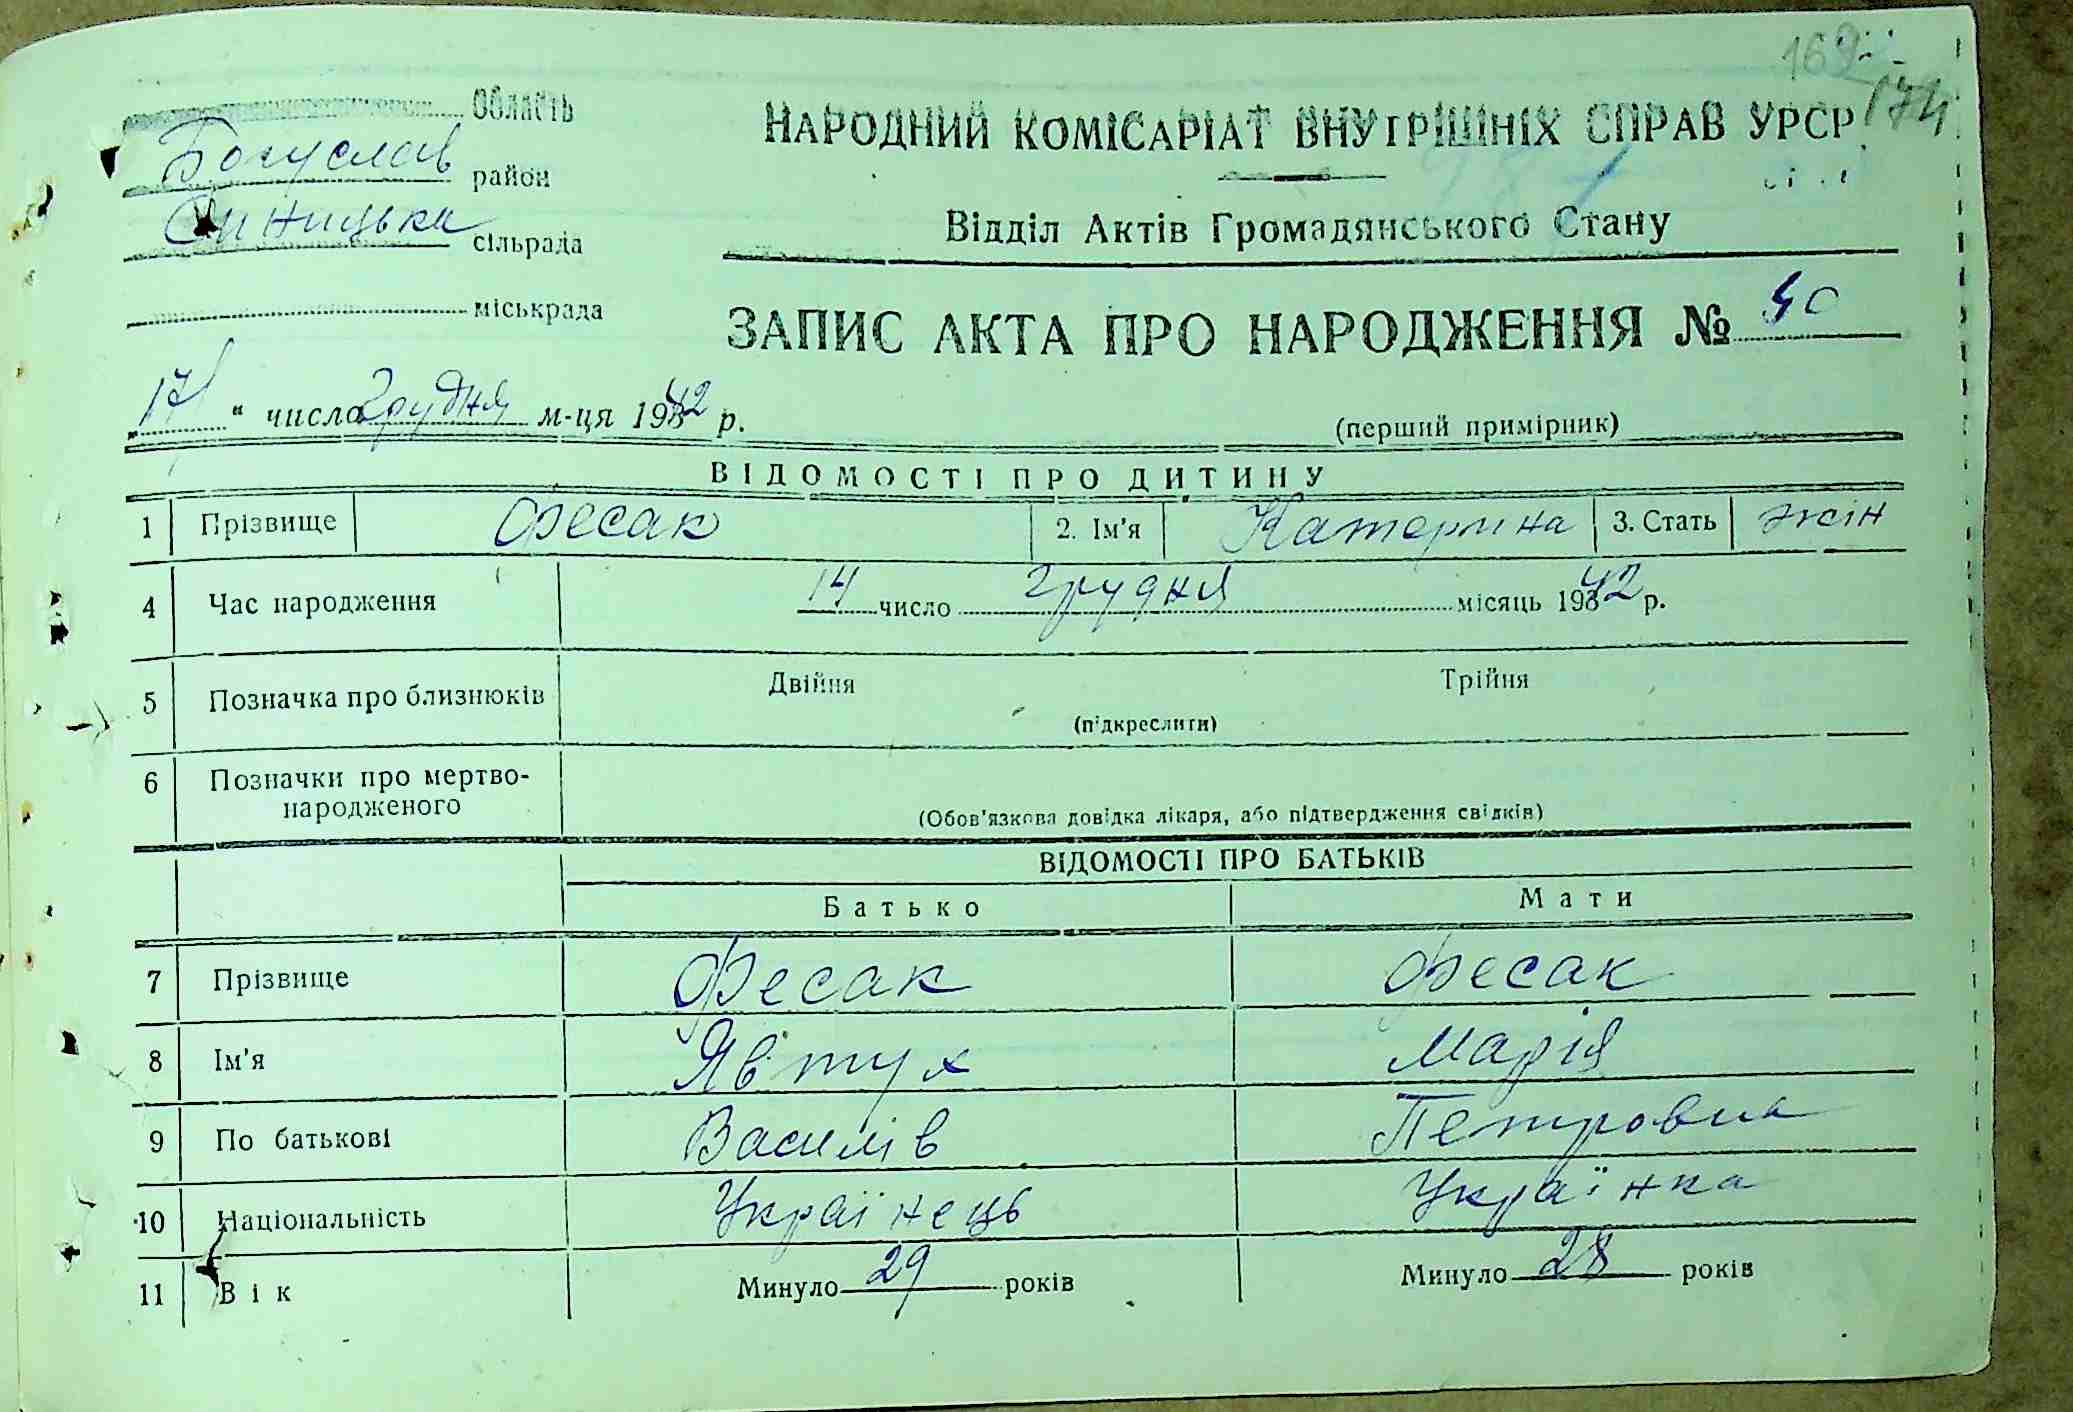 169
174
Область
Богуслав район
Синицька сільрада
міськрада
НАРОДНИЙ КОМІСАРІАТ ВНУТРІШНІХ СПРАВ УРСР
Відділ Актів Громадянського Стану
ЗАПИС АКТА ПРО НАРОДЖЕННЯ № 40
17 " число грудня м-ця 1942 р.
(перший примірник)
ВІДОМОСТІ ПРО ДИТИНУ
1 Прізвище Фесак 2. Ім'я Катерина 3. Стать жін
4 Час народження 14 число грудня місяць 1942 р.
5 Позначка про близнюків Двійня Трійня
(підкреслити)
6 Позначки про мертво-
народженого
(Обов'язкова довідка лікаря, або підтвердження свідків)
ВІДОМОСТІ ПРО БАТЬКІВ
Батько Мати
7 Прізвище Фесак Фесак
8 Ім'я Явтух Марія
9 По батькові Василів Петровна
10 Національність Українець Українка
11 Вік Минуло 29 років Минуло 28 років